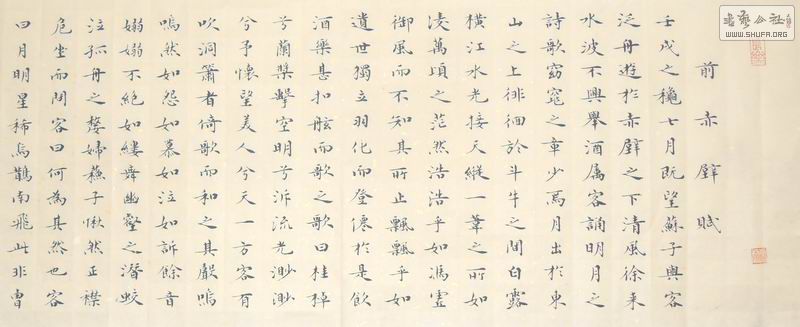 前赤壁賦
壬戌之穐七月既望蘇子與客
泛舟遊於赤壁之下清風徐来
水波不興舉酒属客誦明月之
詩歌窈窕之章少焉月出於東
山之上徘徊於斗牛之間白露
橫江水光接天縱一葦之所如
凌萬頃之茫然浩浩乎如馮虛
御風而不知其所止飄飄乎如
遺世獨立羽化而登僊於是飲
酒樂甚扣舷而歌之歌曰桂棹
兮蘭槳擊空明兮泝流光渺渺
兮予懷望美人兮天一方客有
吹洞簫者倚歌而和之其聲嗚
嗚然如怨如慕如泣如訴餘音
嫋嫋不絕如縷舞幽壑之潛蛟
泣孤舟之嫠婦蘇子愀然正襟
危坐而問客曰何為其然也客
曰月明星稀烏鵲南飛此非曹
WWW.SHUFA.ORG